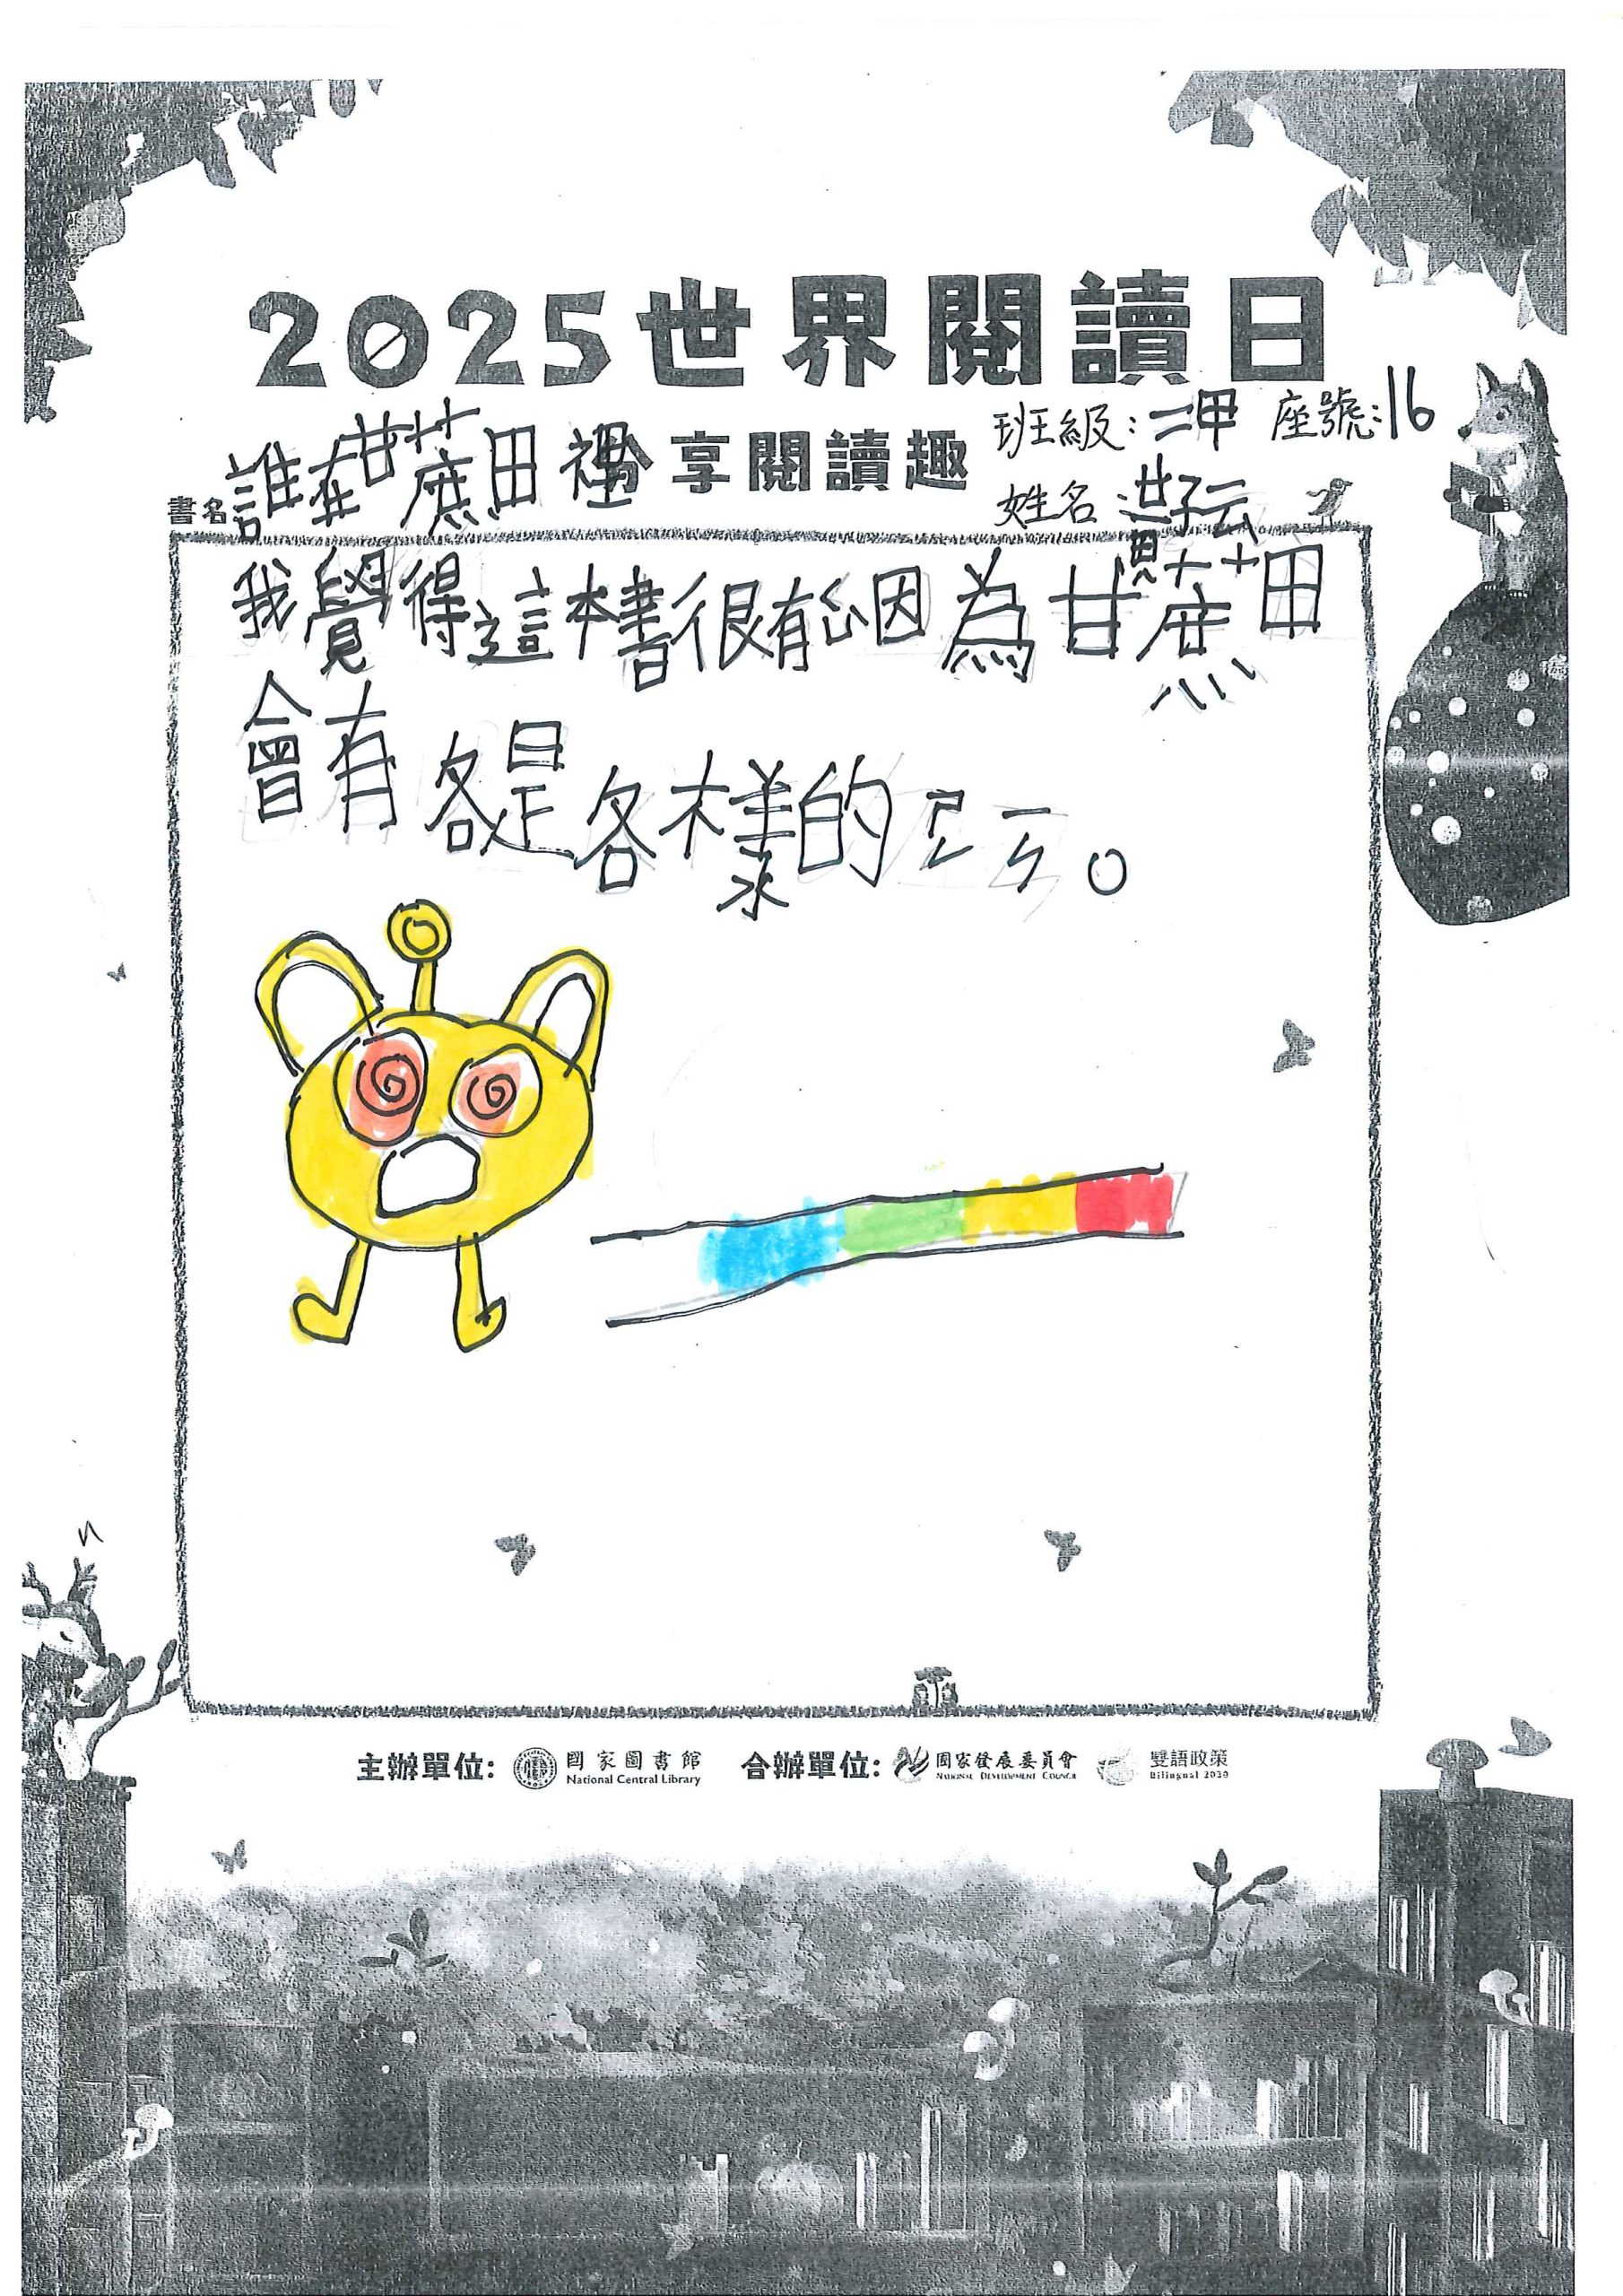 2025世界閱讀日
分享閱讀趣
班級：二甲 座號：16
書名 誰在甘蔗田裡
姓名
我覺得這本書很有 因為甘蔗田
會有各是各樣的
主辦單位：國家圖書館 National Central Library 合辦單位：國家發展委員會 NATIONAL DEVELOPMENT COUNCIL 雙語政策 Bilingual 2030